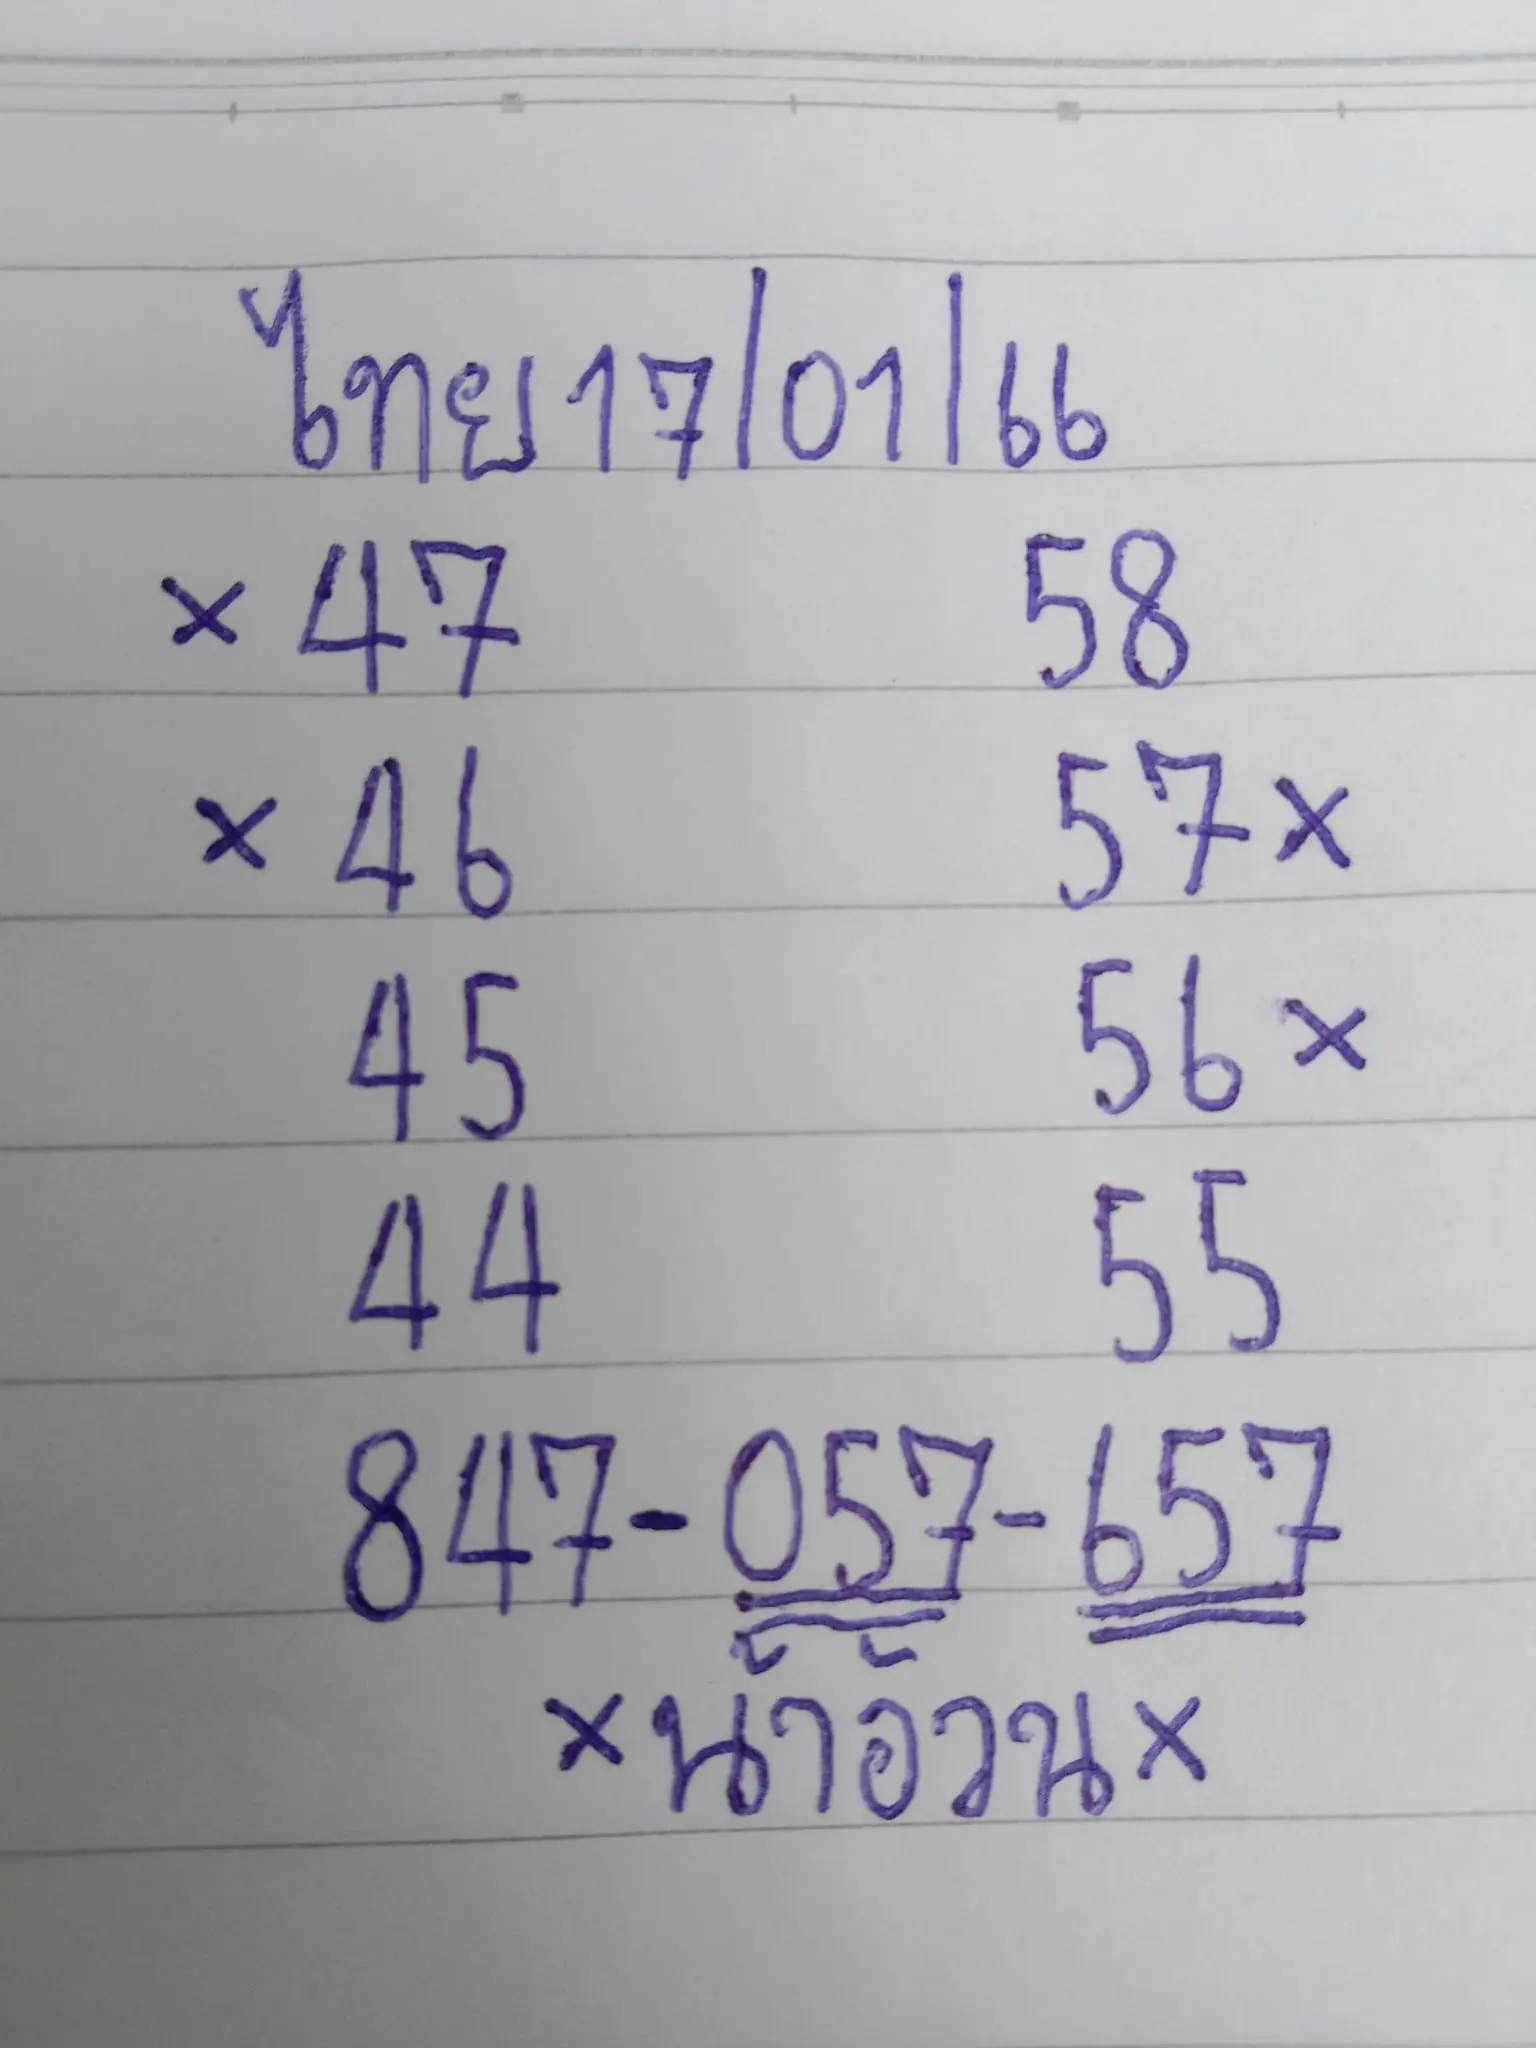 ไทย 17/01/66
× 47 58
× 46 57 ×
45 56 ×
44 55
847-057-657
×น้าอ้วน×